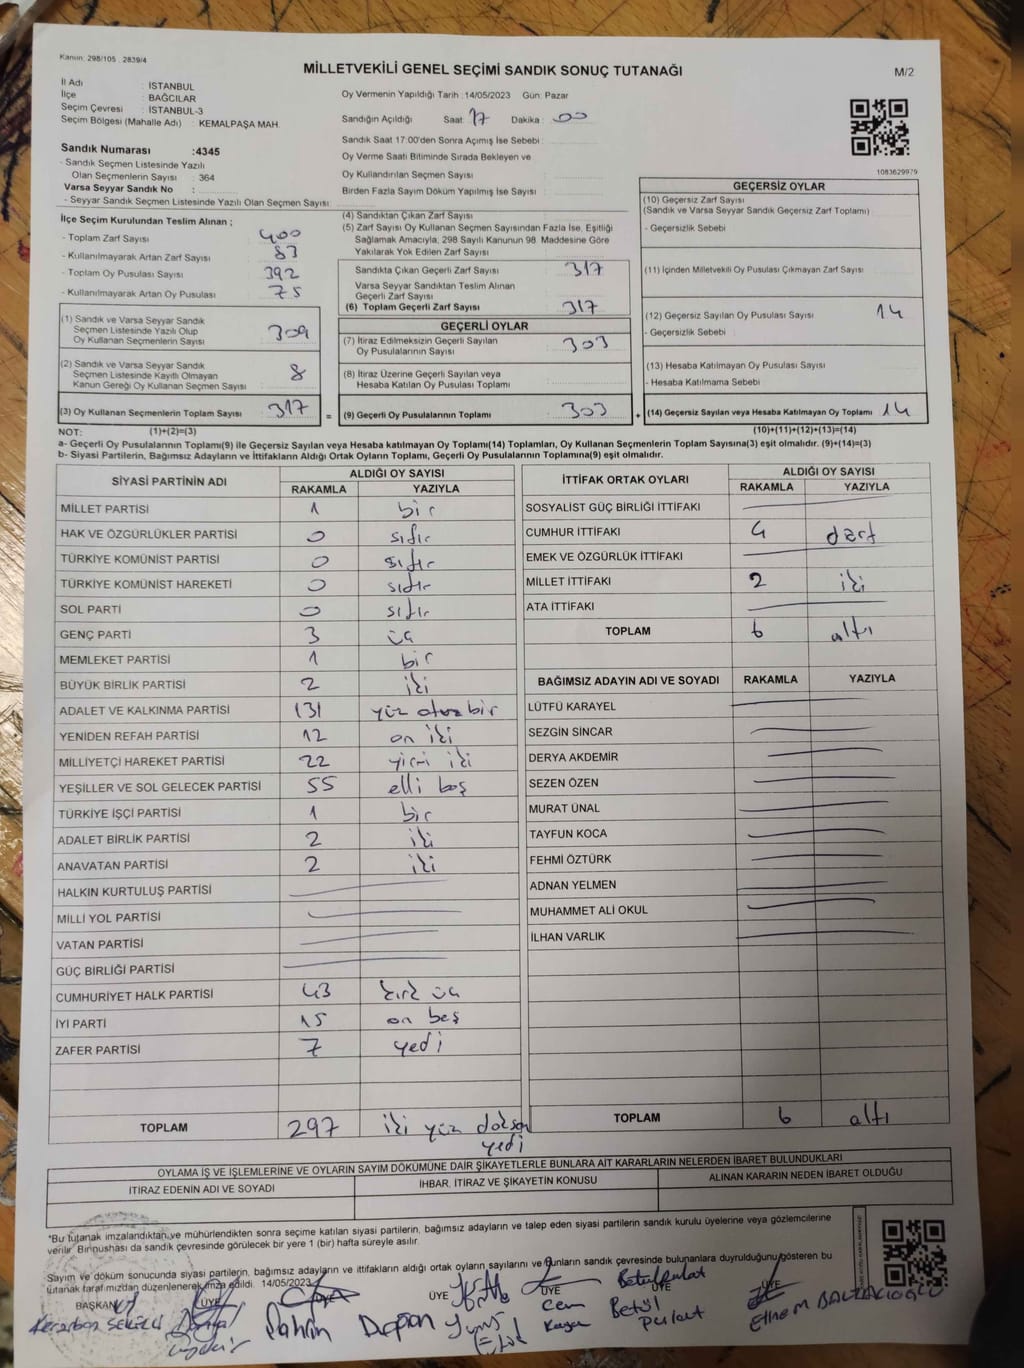 Kanun: 298/105 , 2839/4
MİLLETVEKİLİ GENEL SEÇİMİ SANDIK SONUÇ TUTANAĞI
M/2
İl Adı : İSTANBUL
İlçe : BAĞCILAR
Seçim Çevresi : İSTANBUL-3
Seçim Bölgesi (Mahalle Adı) : KEMALPAŞA MAH.
Sandık Numarası :4345
- Sandık Seçmen Listesinde Yazılı
Olan Seçmenlerin Sayısı : 364
Varsa Seyyar Sandık No :
- Seyyar Sandık Seçmen Listesinde Yazılı Olan Seçmen Sayısı:
Oy Vermenin Yapıldığı Tarih :14/05/2023 Gün: Pazar
Sandığın Açıldığı Saat: 17 Dakika: 00
Sandık Saat 17:00'den Sonra Açımış İse Sebebi :
Oy Verme Saati Bitiminde Sırada Bekleyen ve
Oy Kullandırılan Seçmen Sayısı
Birden Fazla Sayım Döküm Yapılmış İse Sayısı :
1083629979
İlçe Seçim Kurulundan Teslim Alınan ;
- Toplam Zarf Sayısı 400
- Kullanılmayarak Artan Zarf Sayısı 83
- Toplam Oy Pusulası Sayısı 392
- Kullanılmayarak Artan Oy Pusulası 75
(1) Sandık ve Varsa Seyyar Sandık
Seçmen Listesinde Yazılı Olup
Oy Kullanan Seçmenlerin Sayısı 309
(2) Sandık ve Varsa Seyyar Sandık
Seçmen Listesinde Kayıtlı Olmayan
Kanun Gereği Oy Kullanan Seçmen Sayısı 8
(3) Oy Kullanan Seçmenlerin Toplam Sayısı 317 =
(1)+(2)=(3)
(4) Sandıktan Çıkan Zarf Sayısı
(5) Zarf Sayısı Oy Kullanan Seçmen Sayısından Fazla İse, Eşitliği
Sağlamak Amacıyla, 298 Sayılı Kanunun 98. Maddesine Göre
Yakılarak Yok Edilen Zarf Sayısı
Sandıkta Çıkan Geçerli Zarf Sayısı 317
Varsa Seyyar Sandıktan Teslim Alınan
Geçerli Zarf Sayısı
(6) Toplam Geçerli Zarf Sayısı 317
GEÇERLİ OYLAR
(7) İtiraz Edilmeksizin Geçerli Sayılan
Oy Pusulalarının Sayısı 303
(8) İtiraz Üzerine Geçerli Sayılan veya
Hesaba Katılan Oy Pusulası Toplamı
(9) Geçerli Oy Pusulalarının Toplamı 303 +
GEÇERSİZ OYLAR
(10) Geçersiz Zarf Sayısı
(Sandık ve Varsa Seyyar Sandık Geçersiz Zarf Toplamı)
- Geçersizlik Sebebi
(11) İçinden Milletvekili Oy Pusulası Çıkmayan Zarf Sayısı
(12) Geçersiz Sayılan Oy Pusulası Sayısı 14
- Geçersizlik Sebebi :
(13) Hesaba Katılmayan Oy Pusulası Sayısı
- Hesaba Katılmama Sebebi
(14) Geçersiz Sayılan veya Hesaba Katılmayan Oy Toplamı 14
(10)+(11)+(12)+(13)=(14)
NOT:
a- Geçerli Oy Pusulalarının Toplamı(9) ile Geçersiz Sayılan veya Hesaba katılmayan Oy Toplamı(14) Toplamları, Oy Kullanan Seçmenlerin Toplam Sayısına(3) eşit olmalıdır. (9)+(14)=(3)
b- Siyasi Partilerin, Bağımsız Adayların ve İttifakların Aldığı Ortak Oyların Toplamı, Geçerli Oy Pusulalarının Toplamına(9) eşit olmalıdır.
SİYASİ PARTİNİN ADI ALDIĞI OY SAYISI
RAKAMLA YAZIYLA
MİLLET PARTİSİ 1 bir
HAK VE ÖZGÜRLÜKLER PARTİSİ 0 sıfır
TÜRKİYE KOMÜNİST PARTİSİ 0 sıfır
TÜRKİYE KOMÜNİST HAREKETİ 0 sıfır
SOL PARTİ 0 sıfır
GENÇ PARTİ 3 üç
MEMLEKET PARTİSİ 1 bir
BÜYÜK BİRLİK PARTİSİ 2 iki
ADALET VE KALKINMA PARTİSİ 131 yüz otuz bir
YENİDEN REFAH PARTİSİ 12 on iki
MİLLİYETÇİ HAREKET PARTİSİ 22 yirmi iki
YEŞİLLER VE SOL GELECEK PARTİSİ 55 elli beş
TÜRKİYE İŞÇİ PARTİSİ 1 bir
ADALET BİRLİK PARTİSİ 2 iki
ANAVATAN PARTİSİ 2 iki
HALKIN KURTULUŞ PARTİSİ
MİLLİ YOL PARTİSİ
VATAN PARTİSİ
GÜÇ BİRLİĞİ PARTİSİ
CUMHURİYET HALK PARTİSİ 43 kırk üç
İYİ PARTİ 15 on beş
ZAFER PARTİSİ 7 yedi
TOPLAM 297 iki yüz doksan
yedi
İTTİFAK ORTAK OYLARI ALDIĞI OY SAYISI
RAKAMLA YAZIYLA
SOSYALİST GÜÇ BİRLİĞİ İTTİFAKI
CUMHUR İTTİFAKI 4 dört
EMEK VE ÖZGÜRLÜK İTTİFAKI
MİLLET İTTİFAKI 2 iki
ATA İTTİFAKI
TOPLAM 6 altı
BAĞIMSIZ ADAYIN ADI VE SOYADI RAKAMLA YAZIYLA
LÜTFÜ KARAYEL
SEZGİN SİNCAR
DERYA AKDEMİR
SEZEN ÖZEN
MURAT ÜNAL
TAYFUN KOCA
FEHMİ ÖZTÜRK
ADNAN YELMEN
MUHAMMET ALİ OKUL
İLHAN VARLIK
TOPLAM 6 altı
OYLAMA İŞ VE İŞLEMLERİNE VE OYLARIN SAYIM DÖKÜMÜNE DAİR ŞİKAYETLERLE BUNLARA AİT KARARLARIN NELERDEN İBARET BULUNDUKLARI
İTİRAZ EDENİN ADI VE SOYADI İHBAR, İTİRAZ VE ŞİKAYETİN KONUSU ALINAN KARARIN NEDEN İBARET OLDUĞU
*Bu tutanak imzalandıktan ve mühürlendikten sonra seçime katılan siyasi partilerin, bağımsız adayların ve talep eden siyasi partilerin sandık kurulu üyelerine veya gözlemcilerine
verilir. Bir nüshası da sandık çevresinde görülecek bir yere 1 (bir) hafta süreyle asılır.
Sayım ve döküm sonucunda siyasi partilerin, bağımsız adayların ve ittifakların aldığı ortak oyların sayılarını ve bunların sandık çevresinde bulunanlara duyrulduğunu gösteren bu
tutanak tarafımızdan düzenlenerek imza edildi. 14/05/2023
BAŞKAN ÜYE ÜYE ÜYE ÜYE ÜYE
Cem
Betül
Pulat